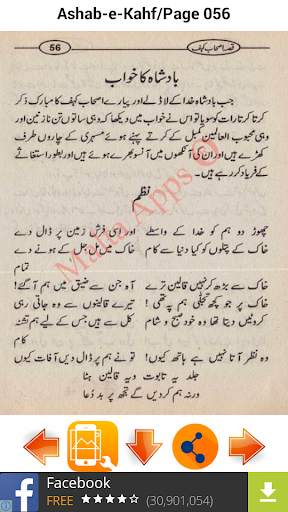 Ashab-e-Kahf/Page 056
56
قصہ اصحاب کہف
بادشاہ کا خواب
جب بادشاہ خدا کے لاڈلے اور پیارے اصحاب کہف کا مبارک ذکر
کرتا کرتا رات کو سویا تو اس نے خواب میں دیکھا کہ وہی ساتوں تن نازنین اور
وہی محبوب العالمین کمبل کے کرتے پہنے ہوئے مسہری کے چاروں طرف
کھڑے ہیں اور ان کی آنکھوں میں آنسو بھرے ہوئے ہیں اور بطور استغاثے
کے فریاد کر رہے ہیں۔
نظم
چھوڑ دو ہم کو خدا کے واسطے اور اسی فرش زمین پر ڈال دو
خاک کے پتلوں کو کیا دنیا سے کام خاک میں مل جل کے ہونے دے
تمام
خاک سے بڑھ کر نہیں قالین ترے آہ جن سے ضیق میں ہم آ گئے!
خاک پر جو کچھ تجلی ہم پہ تھی! تیرے قالینوں سے وہ جاتی رہی
کروٹیں دیتا تھا وہ خود صبح و شام کل سے ہیں جس کے لیے ہم تشنہ
کام
وہ نظر آتا نہیں ہے ہاتھ کیوں! تو نے ہم پر ڈال دیں آفات کیوں
جلد یہ تابوت و یہ قالین ہٹا
ورنہ ہم کردیں گے تجھ پر بد دعا
Malta Apps ©
Facebook
FREE ★★★★☆ (30,901,054)